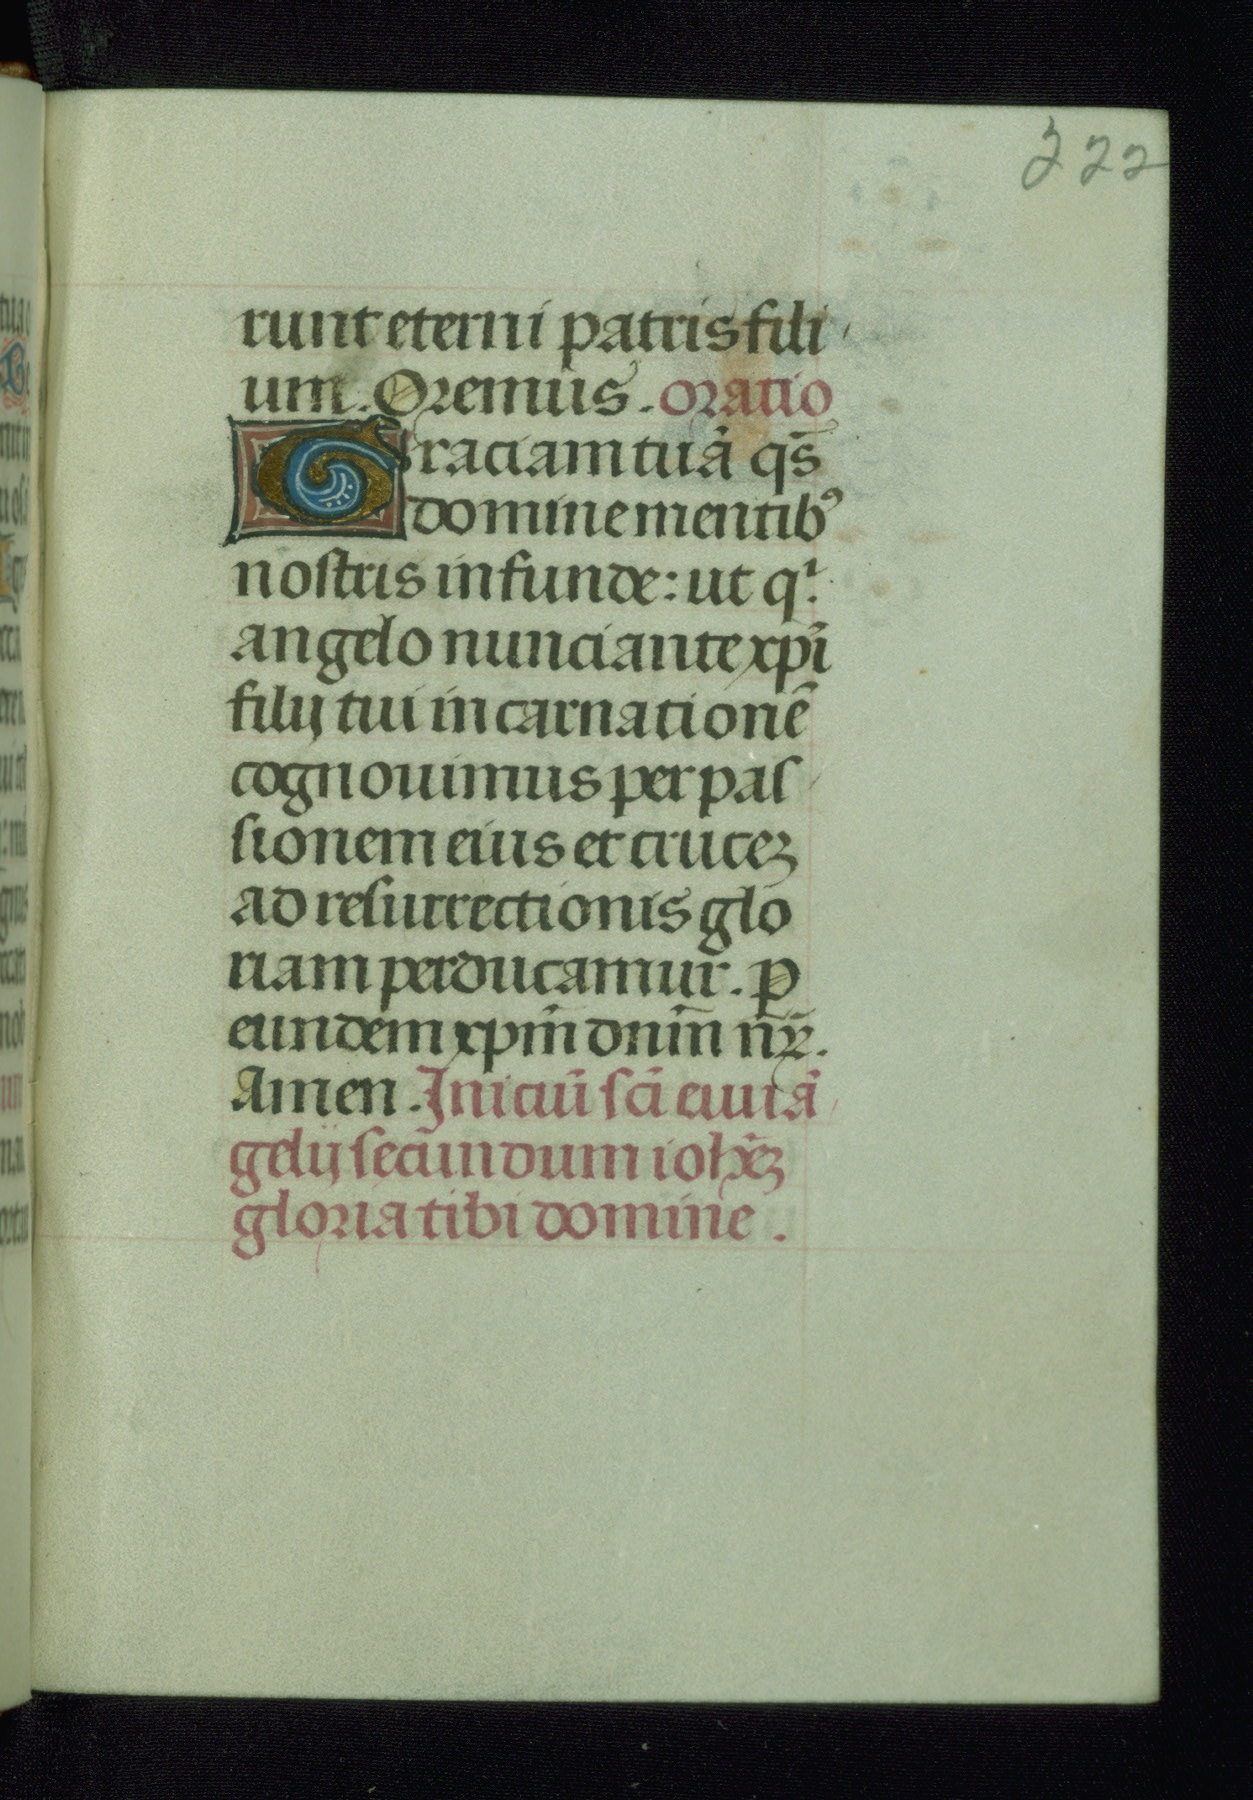 222
runt eterni patris fili
um. Oremus. oratio
Graciam tuā qs̄
domine mentibꝰ
nostris infunde: ut qⁱ.
angelo nunciante xp̄i
filij tui incarnationē
cognouimus per pas
sionem eius et crucez
ad resurrectionis glo
riam perducamur. ꝑ
eundem xp̄m dnm̄ nr̄.
Amen. Iniciū sc̄i euuā
gelij secundum ioh̄ez
gloria tibi domine.